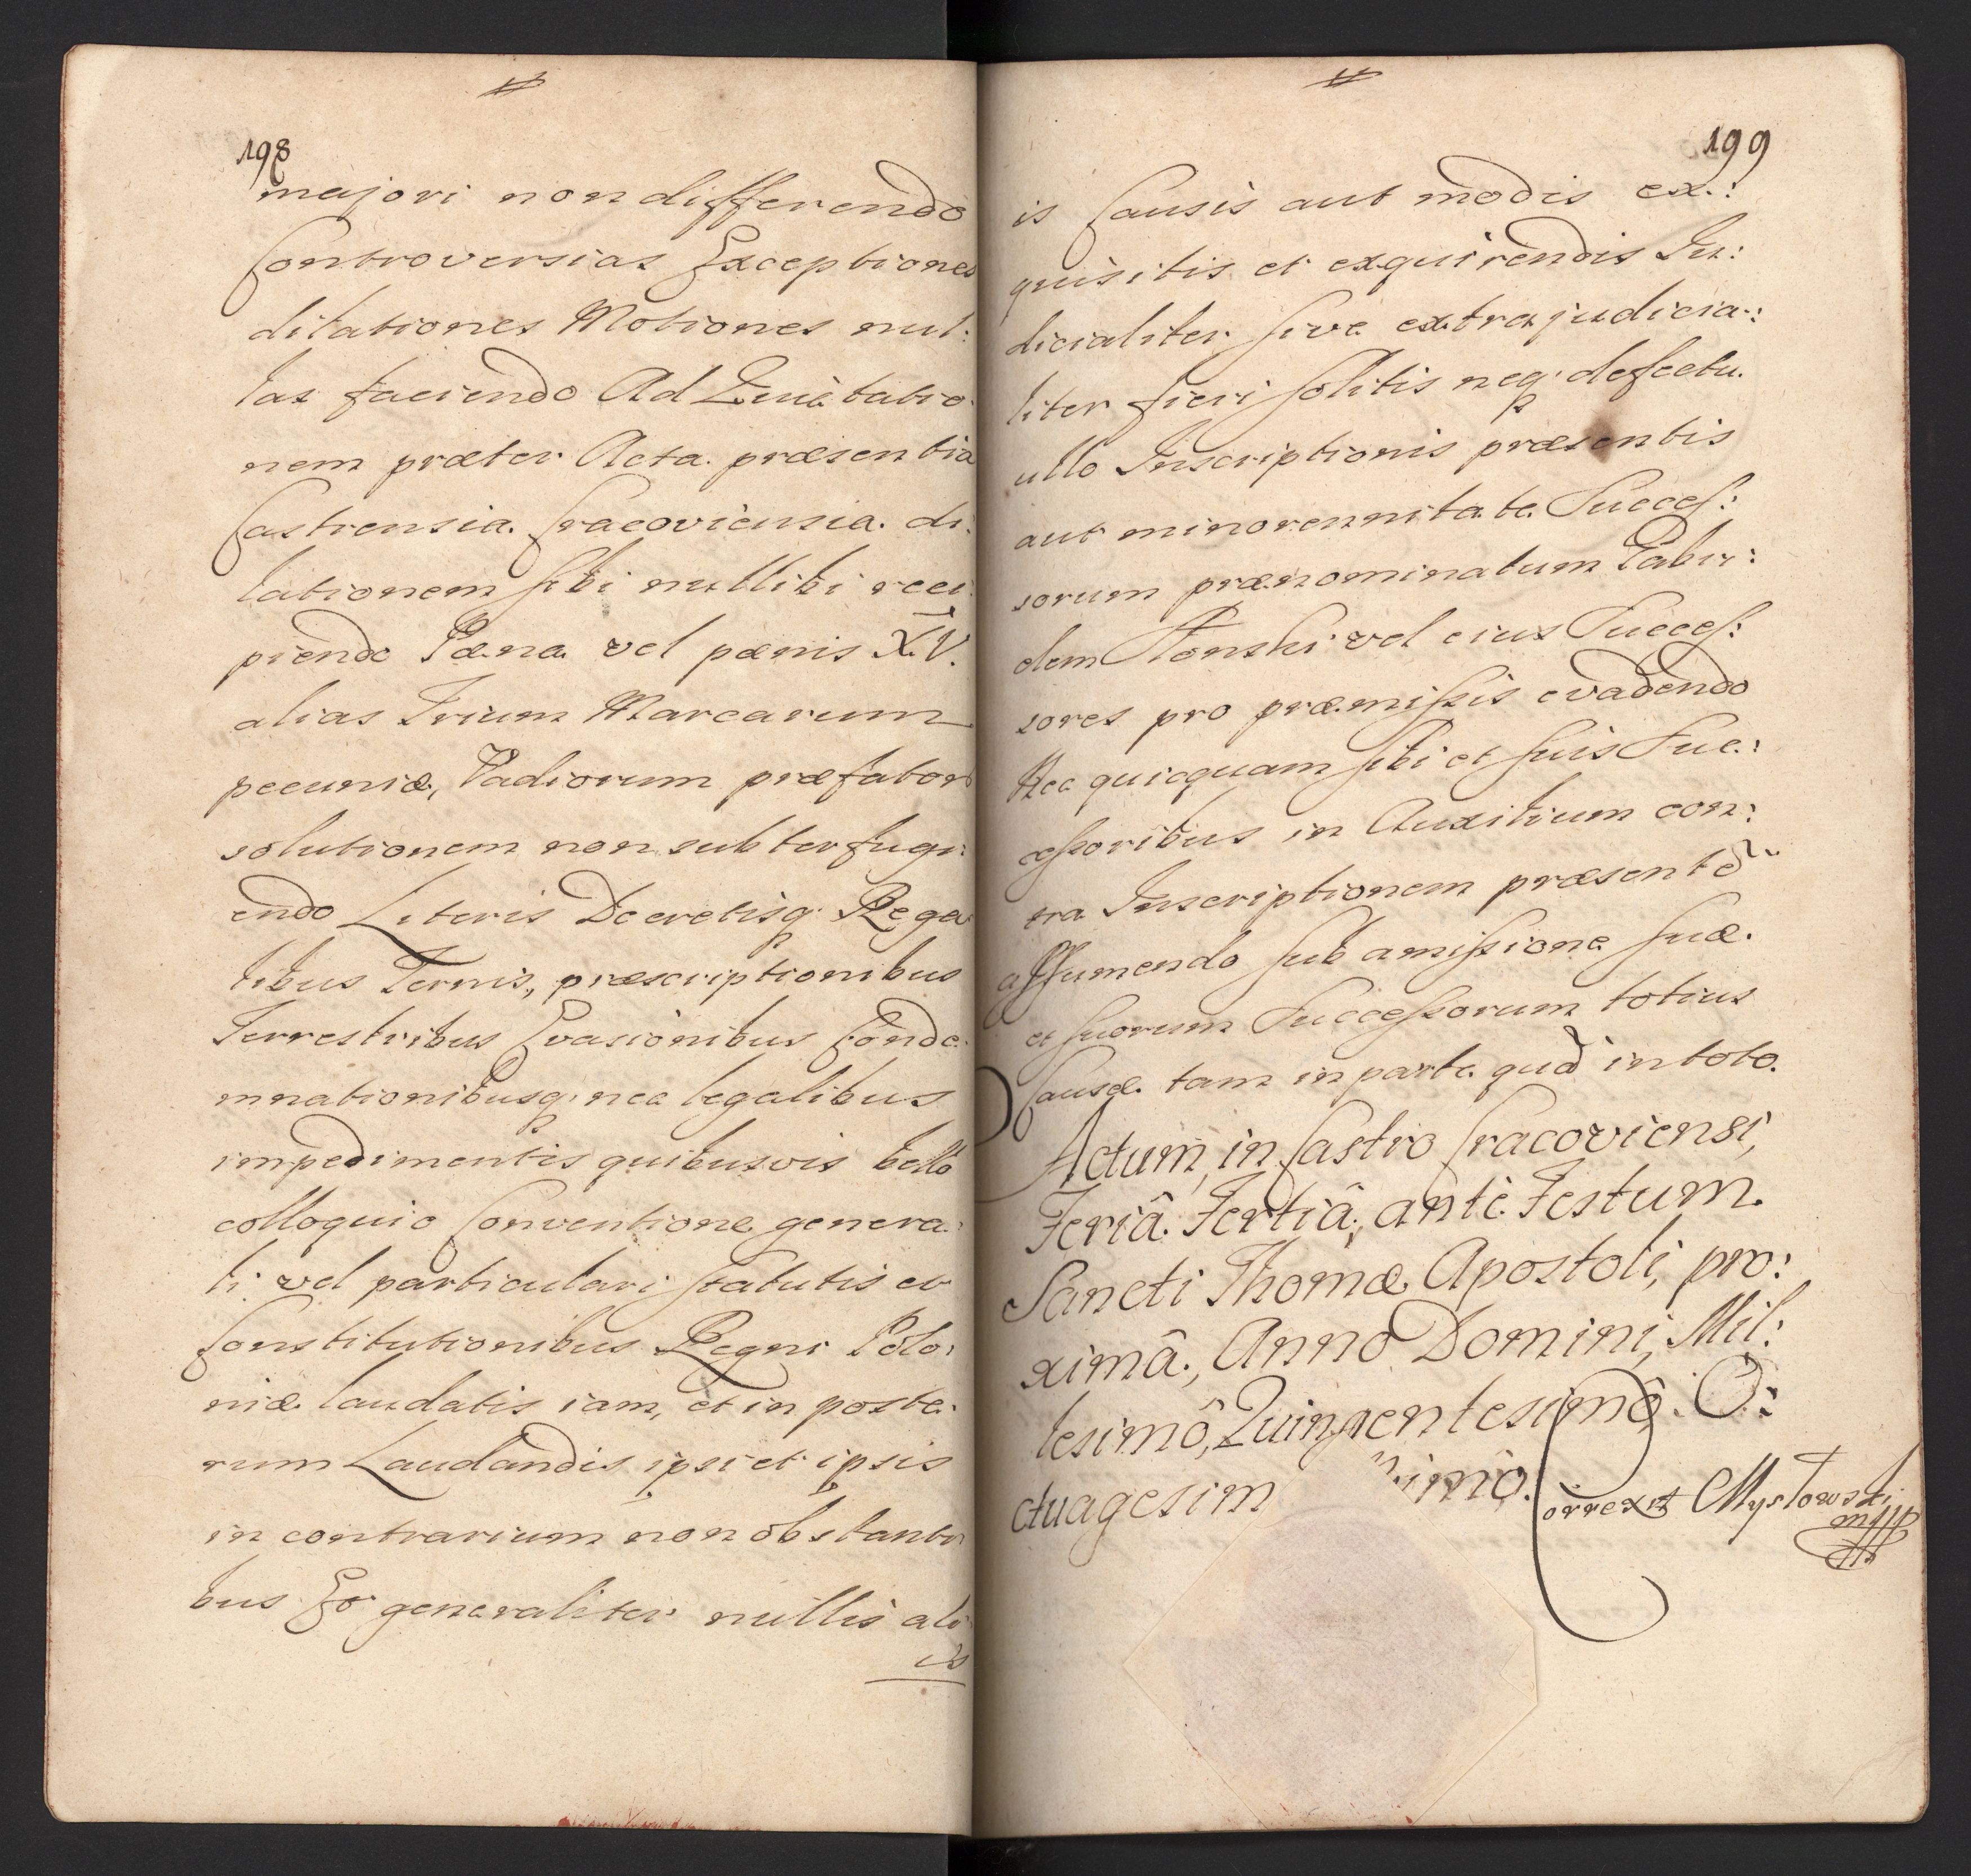 198
majori non differendo
Controversias Exceptiones
dilationes Motiones nul:
las faciendo Ad Quietatio
nem præter Acta præsentia
Castrensia Cracoviensia di:
lationem sibi nullibi reci
piendo Pæna vel pænis X.V.
alias Trium Marcarum
pecuniæ, Vadiorum præfator
solutionem non subterfugi:
endo Literis Decretisq Rega
libus Ternis, præscriptionibus
Terrestribus Evasionibus Conde:
mnationibusq, nec legalibus
impedimentis quibusvis bello
colloquio Conventione genera:
li vel particulari statutis et
Constitutionibus Regni Polo:
niæ laudatis iam, et in poste:
rum Laudandis ipsi et ipsis
in contrarium non obstanti
bus Et generaliter nullis ali
is
199
is Causis aut modis ex:
quisitis et exquirendis Iu:
dicialiter sive extrajudicia:
liter fieri solitis neq defectu
ullo Inscriptionis præsentis
aut minorennitate Succes:
sorum prænominatum Pabi:
dem Konski vel eius Succes:
sores pro præmissis evadendo
Nec quicquam sibi et suis Suc:
cessoribus in Auxilium con:
tra Inscriptionem præsente
assumendo sub amissione suæ
et suorum Successorum totius
Causæ tam in parte quã in toto.
Actum, in Castro Cracoviensi,
Feriâ Tertiâ, antè Festum
Sancti Thomæ Apostoli, pro:
ximâ, Anno Domini, Mil:
lesimô, Quingentesimô. O:
ctuagesim imo.
Correxit Mysłowski